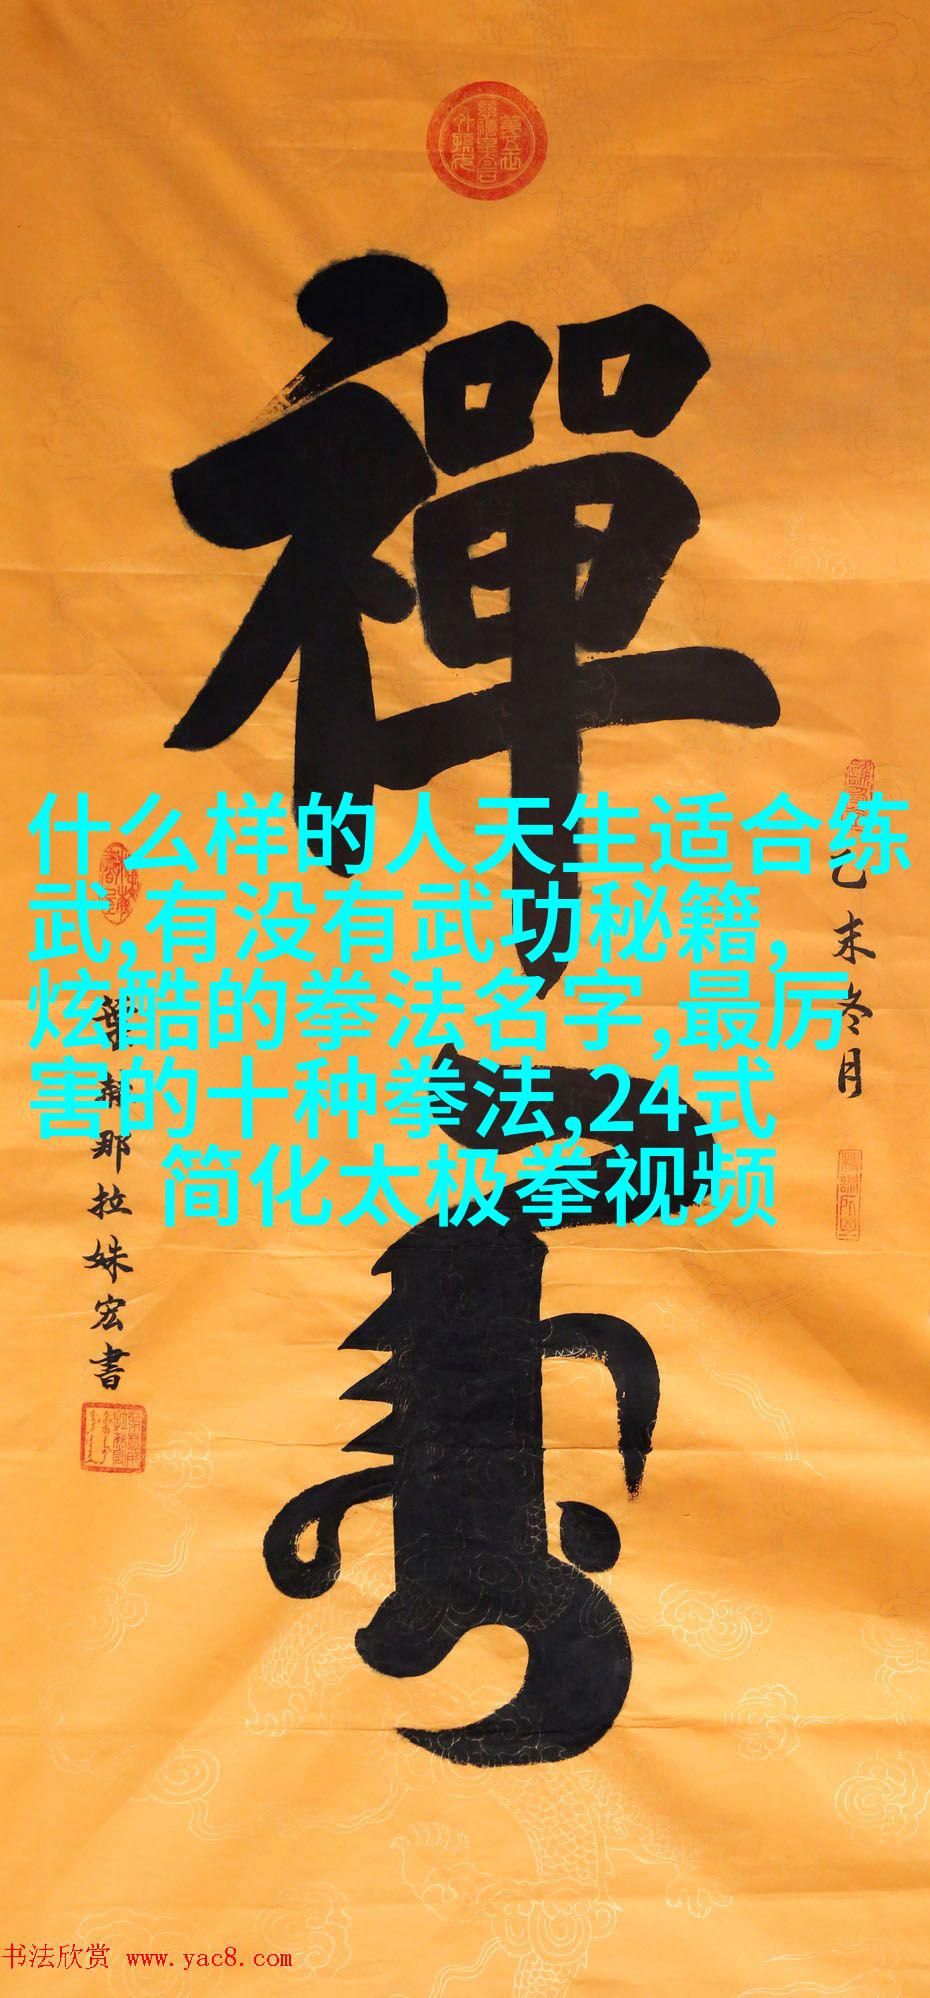 禪
什么样的人天生适合练
武,有没有武功秘籍,
炫酷的拳法名字,最厉
害的十种拳法,24式
简化太极拳视频
己未冬月
葉赫那拉姝宏書
书法欣赏 www.yac8.com